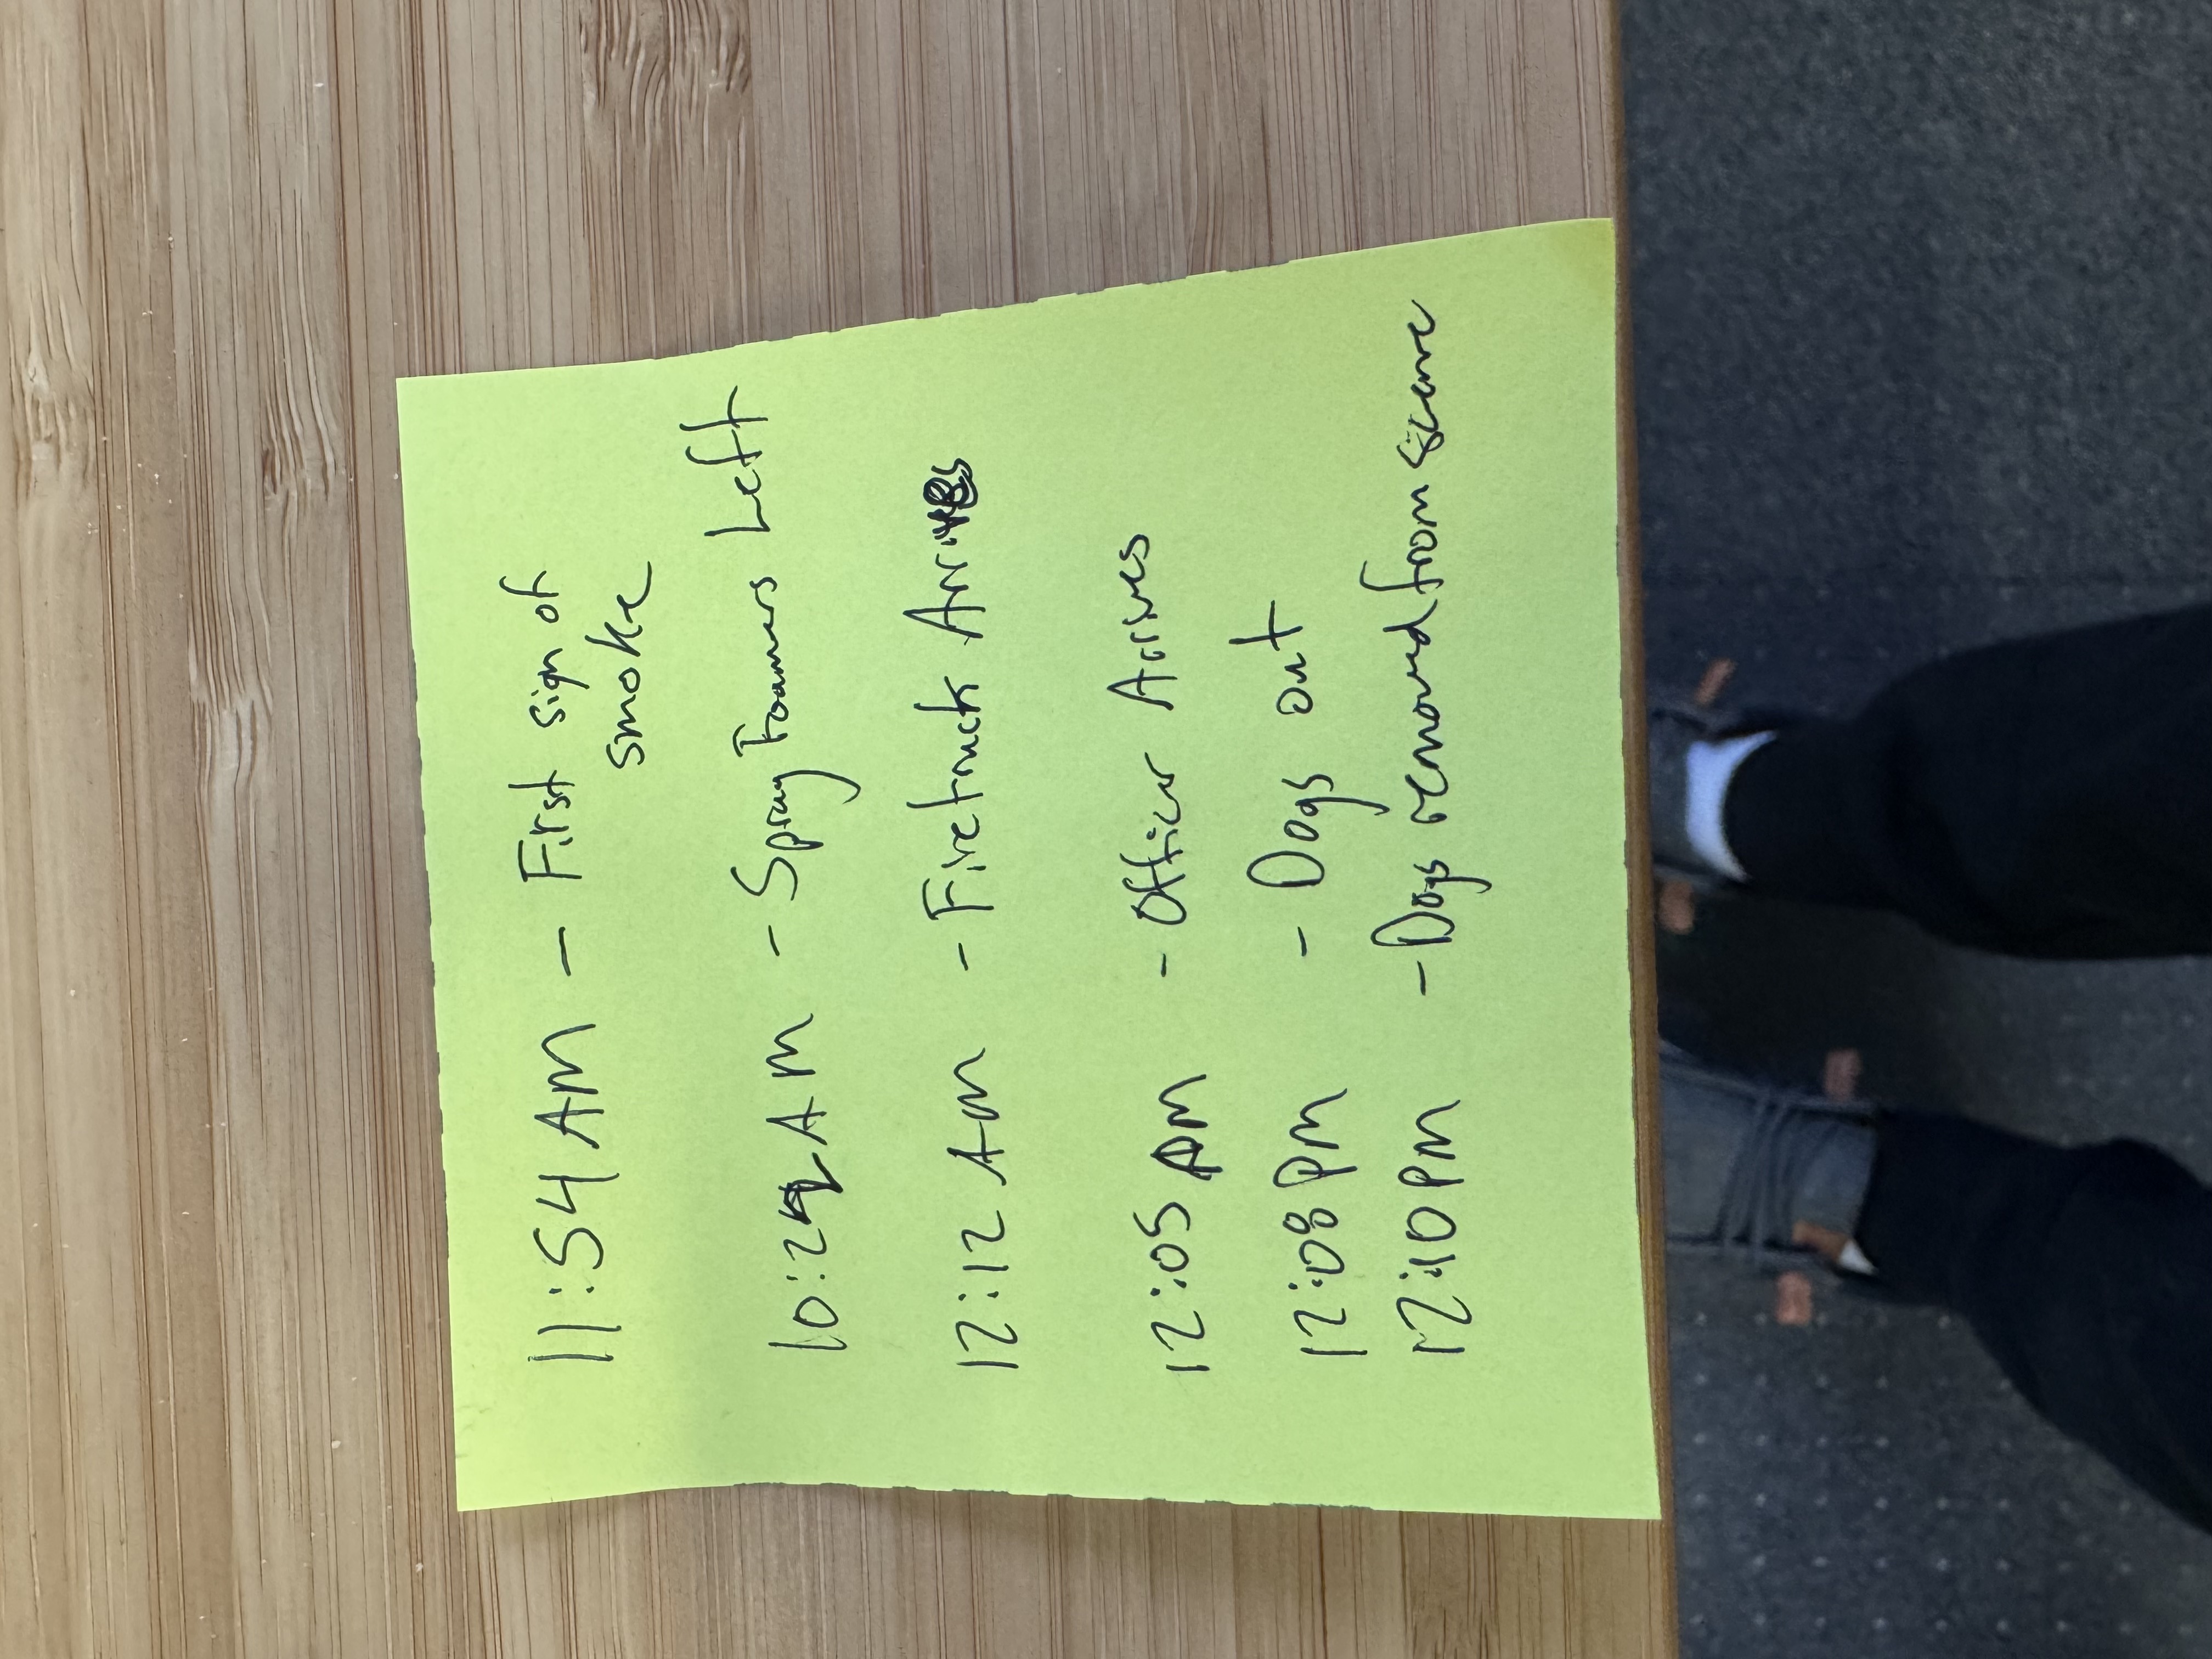 11:54 AM - First sign of
smoke
10:29 AM - Spray Foamers Left
12:12 Am - Firetruck Arrives
12:05 PM - Officer Arrives
12:08 PM - Dogs out
12:10 PM - Dogs removed from scene